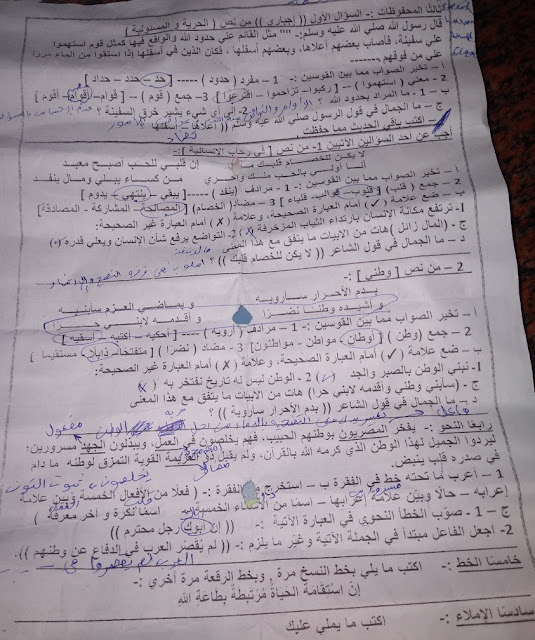 ثالثا المحفوظات :- السؤال الأول (( إجباري )) من نص ( الحرية و المسئولية )
قال رسول الله صلي الله عليه وسلم:- "" مثل القائم علي حدود الله والواقع فيها كمثل قوم استهموا
علي سفينة، فأصاب بعضهم أعلاها، وبعضهم أسفلها ، فكان الذين في أسفلها إذا استقوا من الماء مروا
علي من فوقهم -------
أ - تخير الصواب مما بين القوسين :- 1 - مفرد ( حدود ) ----- [ حد - حدد - حداد ]
2- معني ( استهموا ) – [ ركبوا- تزاحموا - اقترعوا ] 3- جمع ( قوم ) -- [ قوام- أقوام – أقوم ]
ب - 1- ما المراد بحدود الله ؟ 2- إلي أي شيء يشير خرق السفينة ؟
ج – ما الجمال في قول الرسول صلي الله عليه وسلم (( أعلاها – أسفلها ))
د – اكتب باقي الحديث مما حفظت
أجب عن أحد السؤالين الآتيين 1- من نص [ في رحاب الإنسانية ]:-
لا يكن للخصام قلبك
إن قلبي للحب أصبح معبد
أنا أولي بالحب منك وأحري
من كساء يبلي ومال ينفد
أ- تخير الصواب مما بين القوسين :- 1 - مرادف ( ينفد ) ----- [ يبقي – ينتهي – يدوم ]
2- جمع ( قلب ) [ قلوب - قوالب- قلباء ] 3 – مضاد ( الخصام ) [ المصالحة – المشاركة - المصادقة]
ب – ضع علامة (✓) أمام العبارة الصحيحة، وعلامة (✗) أمام العبارة غير الصحيحة:
1- ترتفع مكانة الإنسان بارتداء الثياب المزخرفة (✗) 2- التواضع يرفع شأن الإنسان ويعلي قدره (✓)
ج - (المال زائل) هات من الأبيات ما يتفق مع هذا المعني
د – ما الجمال في قول الشاعر (( لا يكن للخصام قلبك )) ؟
2 – من نص [ وطني ] :-
بدم الأحرار سأرويه
و بماضي العزم سأبنيه
و أشيده وطنا نضرا
و أقدمه لابني حرا
أ - تخير الصواب مما بين القوسين :- 1 - مرادف ( أرويه ) ---- [ أحكيه – أكتبه – أسقيه ]
2 – جمع (وطن ) [ أوطان – مواطن - مواطنون ] 3- مضاد ( نضرا ) [ متفتحا- ذابلا - مستقيما ]
ب - ضع علامة (✓) أمام العبارة الصحيحة، وعلامة (✗) أمام العبارة غير الصحيحة:
1- نبني الوطن بالصبر والجد (✓) 2- الوطن ليس له تاريخ نفتخر به (✗)
ج - (سأبني وطني وأقدمه لابني حرا) هات من الأبيات ما يتفق مع هذا المعني
د - ما الجمال في قول الشاعر (( بدم الأحرار سأروية )) ؟
رابعا النحو :- يفخر المصريون بوطنهم الحبيب، فهم يخلصون في العمل، ويبذلون الجهد مسرورين؛
ليردوا الجميل لهذا الوطن الذي كرمه الله بالقرآن، ولم يقبل ذو العزيمة القوية التمزق لوطنه ما دام
في صدره قلب ينبض.
أ – أعرب ما تحته خط في الفقرة ب – استخرج من الفقرة :- ( فعلا من الأفعال الخمسة وبين علامة
إعرابه – حالا وبين علامة إعرابها – اسما من الأسماء الخمسة – اسما نكرة و آخر معرفة )
ج – 1 – صوب الخطأ النحوي في العبارة الآتية :- (( إن أبوك رجل محترم ))
2- اجعل الفاعل مبتدأ في الجملة الآتية وغير ما يلزم :- (( لم يقصر العرب في الدفاع عن وطنهم )).
خامسا الخط :- اكتب ما يلي بخط النسخ مرة , وبخط الرقعة مرة أخري :-
إن استقامة الحياة مرتبطة بطاعة الله
سادسا الإملاء :- اكتب ما يملي عليك